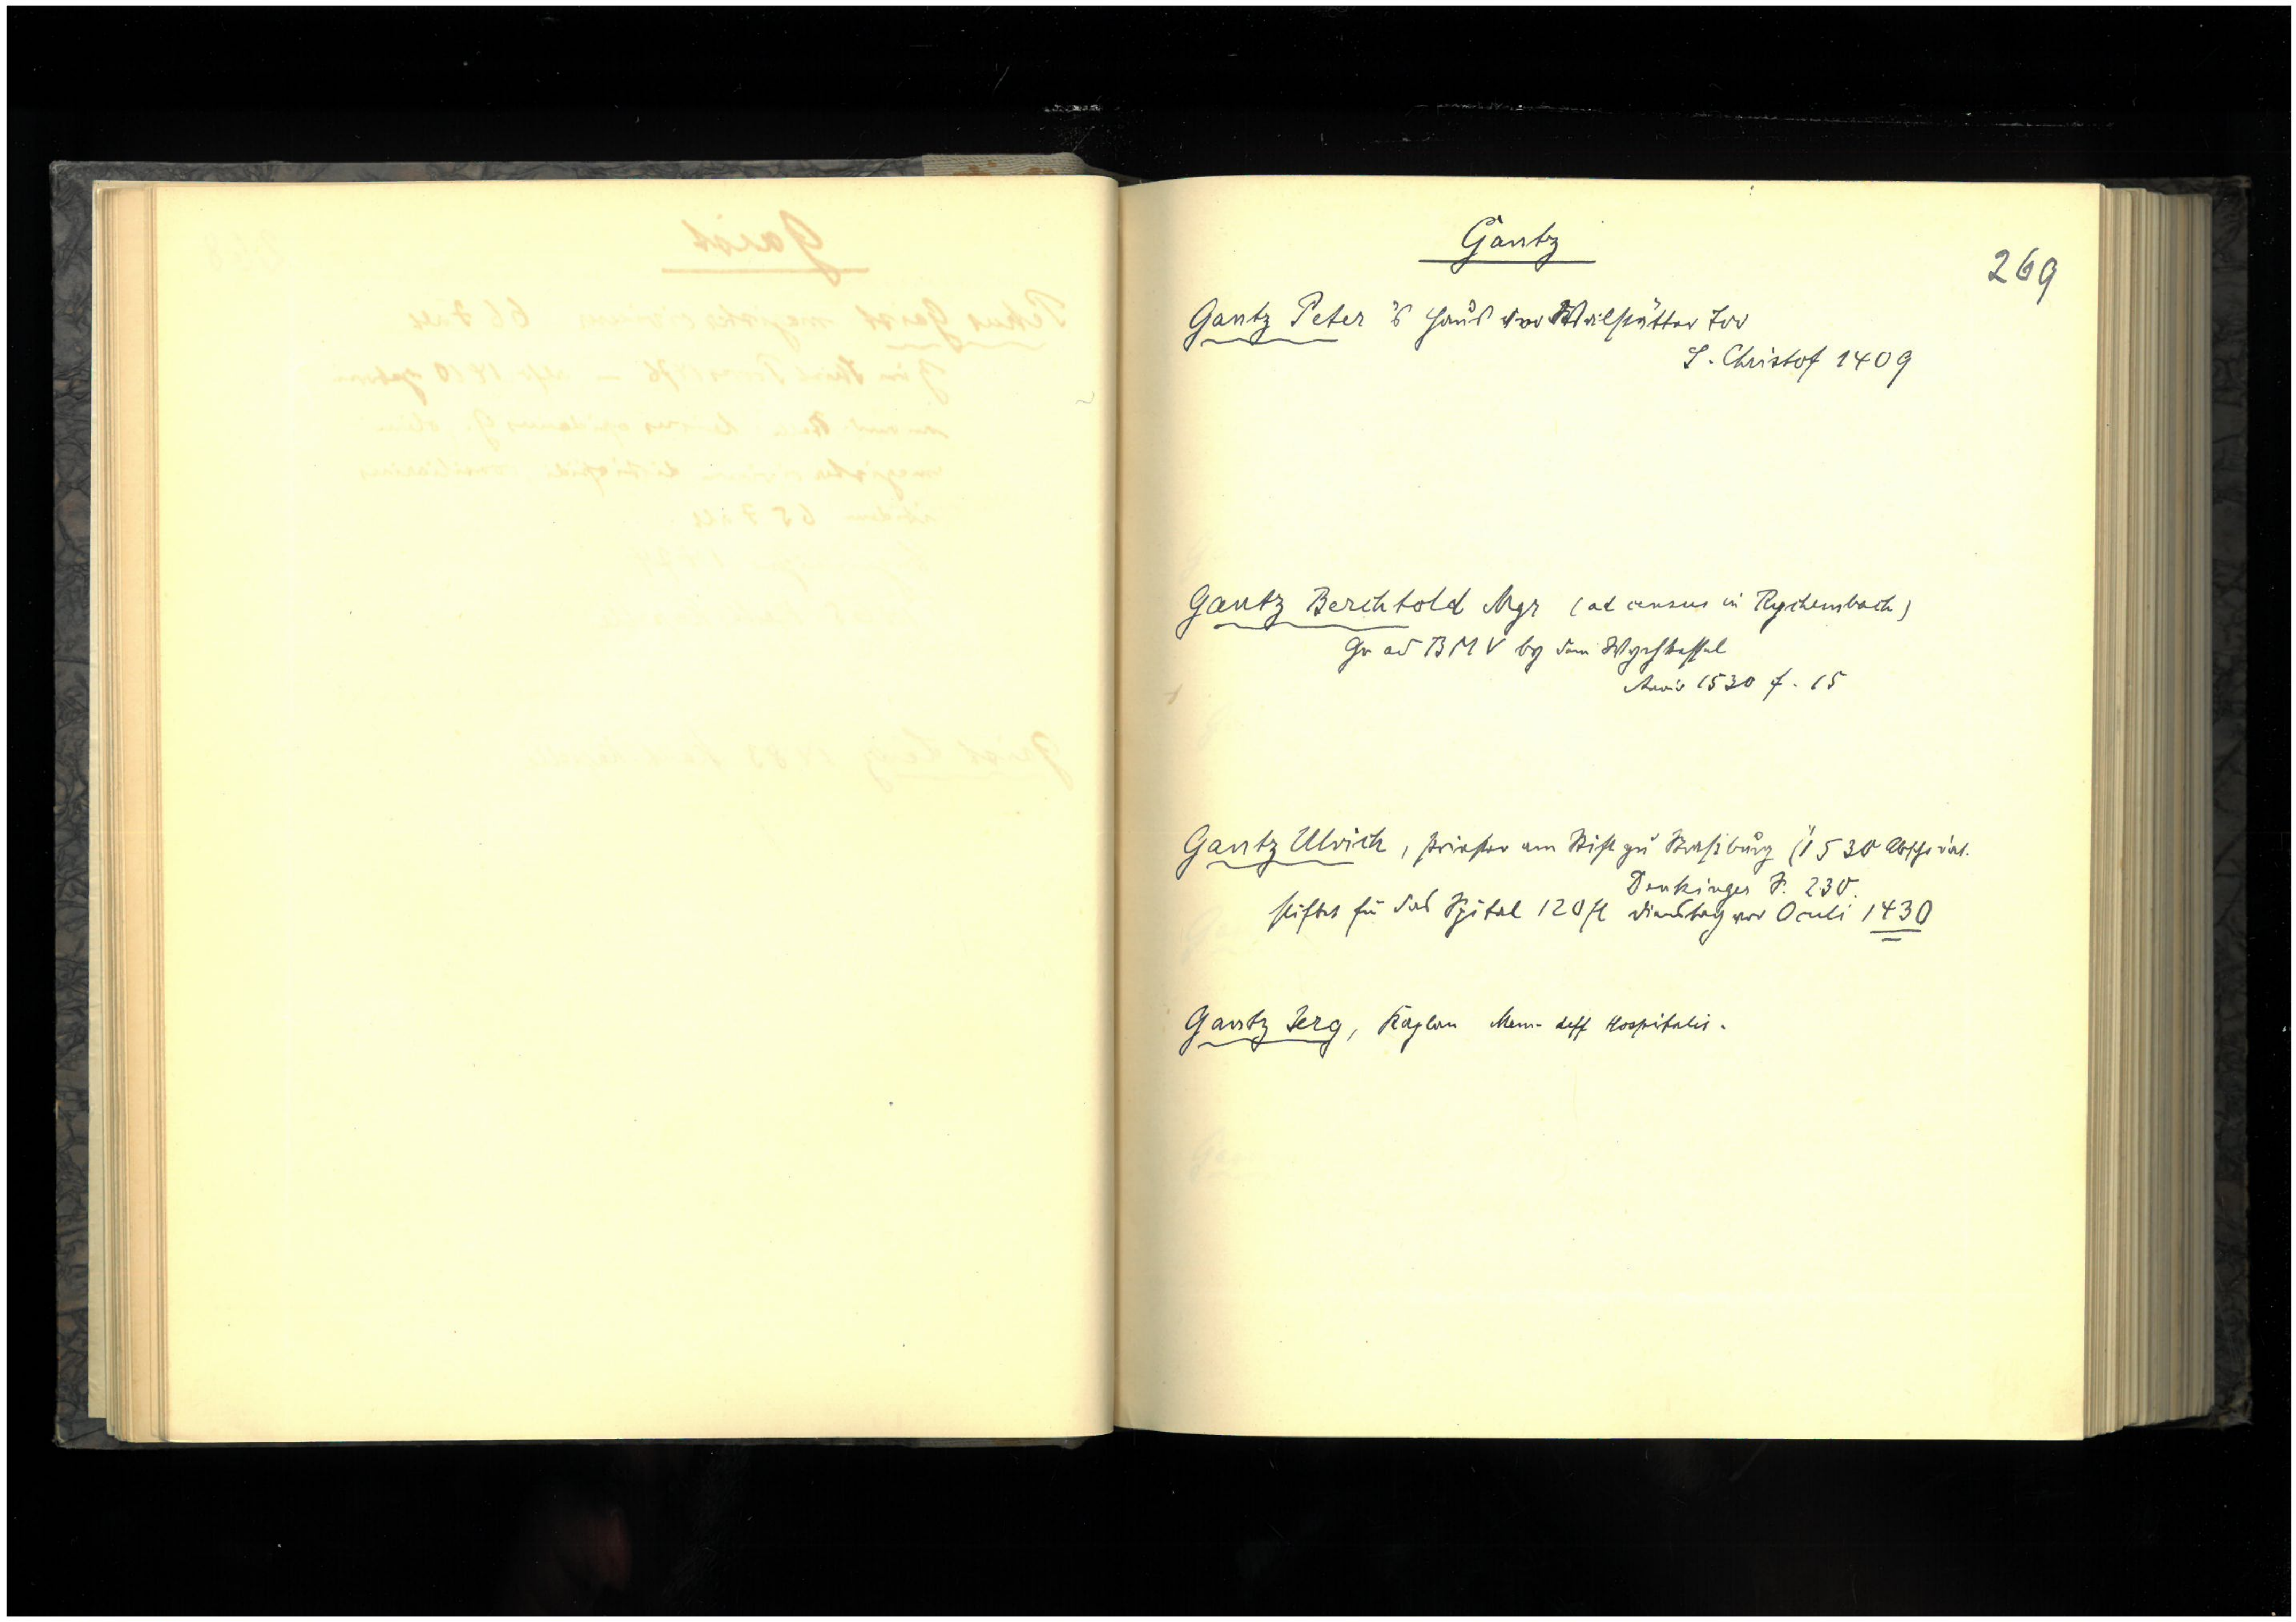 Gantz
269
Gantz Peter's Haus vor Wailstätter Tor
S. Christof 1409
Gantz Berchtold Mgr (ad census in Rychembach)
ad BMV by dem
1530 f. 15
Gantz Ulrich, Priester am Stift zu Straßburg (1530 Abschrift.
Denkinger S. 230.
stiftet für das Spital 120 fl Dienstag vor Oculi 1430
Gantz Jerg, Kaplan Mem. deff Hospitalis.